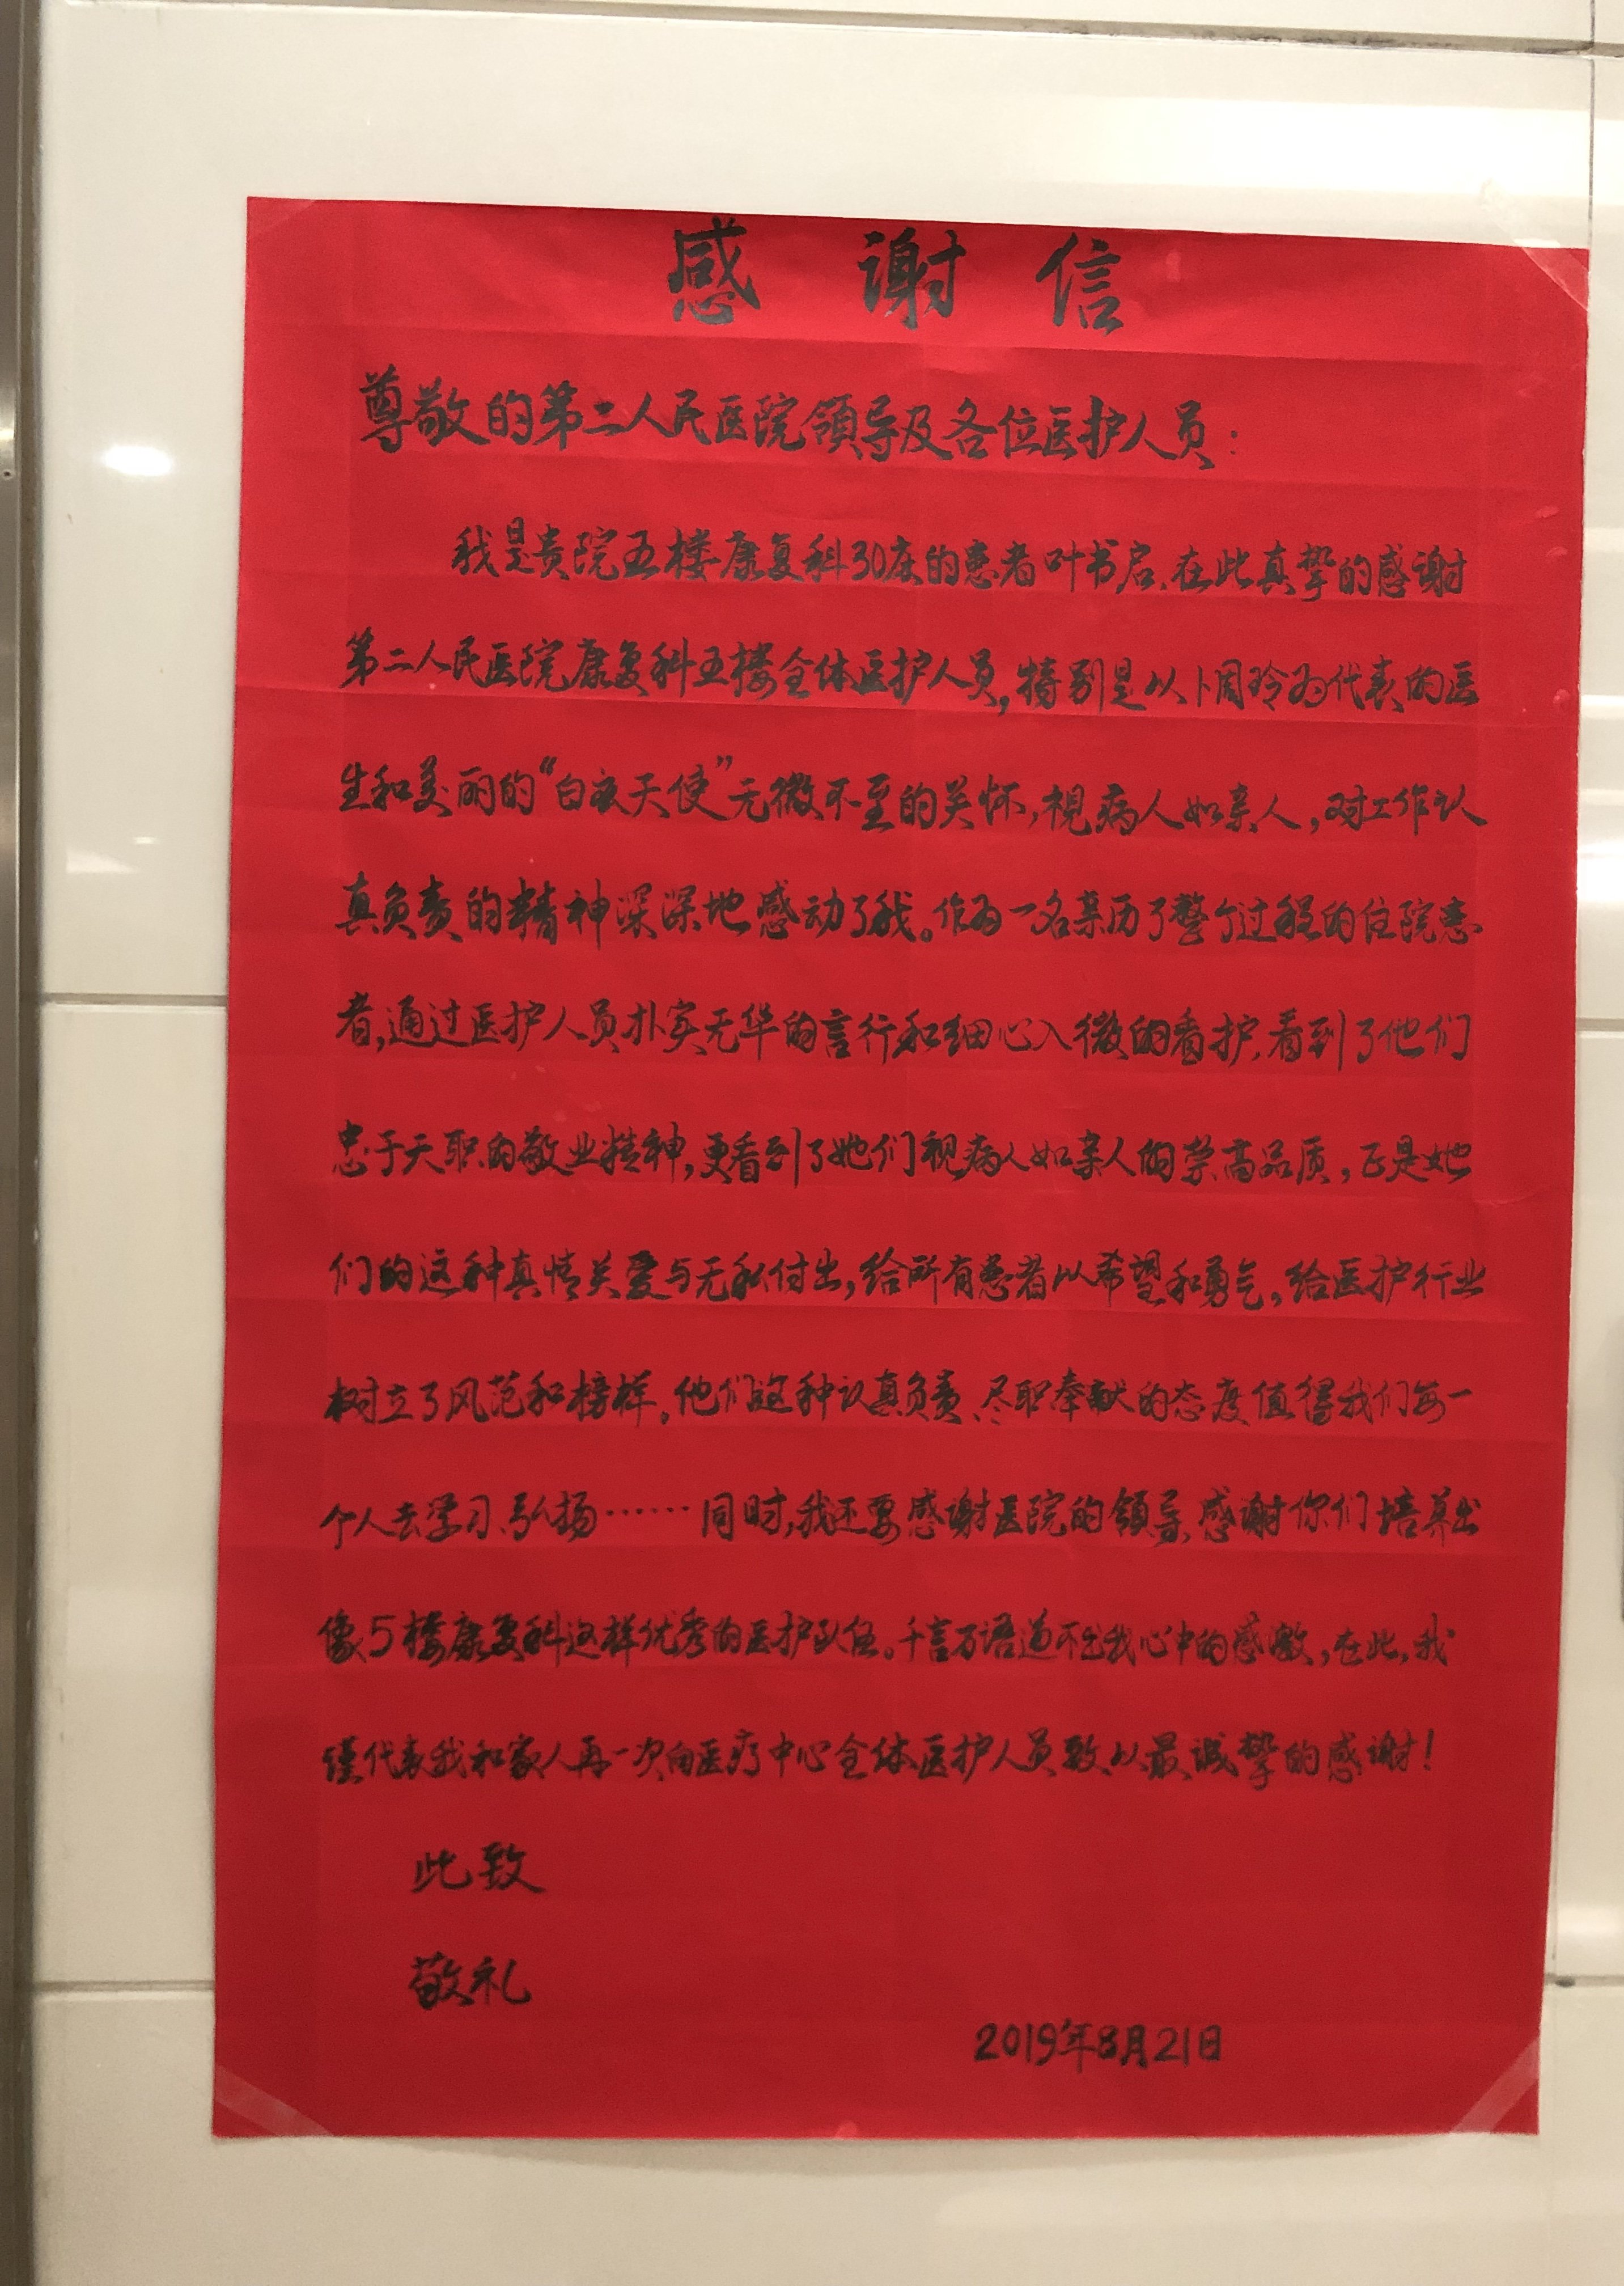 感谢信
尊敬的第二人民医院領导及各位医护人员：
我是贵院五楼康复科30床的患者叶书启，在此真挚的感谢
第二人民医院康复科五楼全体医护人员，特别是以卜周玲为代表的医
生和美丽的“白衣天使”无微不至的关怀，视病人如亲人，对工作认
真负责的精神深深地感动了我。作为一名亲历了整个过程的住院患
者，通过医护人员朴实无华的言行和细心入微的看护，看到了他们
忠于天职的敬业精神，更看到了她们视病人如亲人的崇高品质，正是她
们的这种真情关爱与无私付出，给所有患者以希望和勇气，给医护行业
树立了风范和榜样。他们这种认真负责、尽职奉献的态度值得我们每一
个人去学习、弘扬……同时，我还要感谢医院的領导，感谢你们培养出
像5楼康复科这样优秀的医护队伍。千言万语道不出我心中的感激，在此，我
谨代表我和家人再一次向医疗中心全体医护人员致以最诚挚的感谢！
此致
敬礼
2019年8月21日